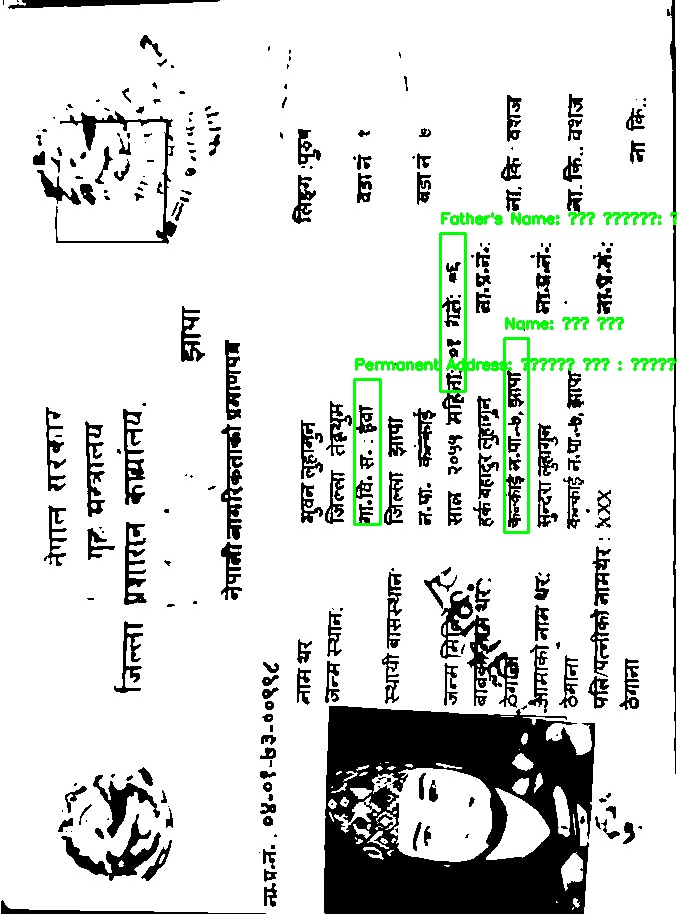 नेपाल सरकार
गृह मन्त्रालय
जिल्ला प्रशासन कार्यालय, झापा
नेपाली नागरिकताको प्रमाणपत्र
ना.प्र.नं. ०४-०१-७३-००९९८
नाम थर भुवन लुहागुन लिङ्ग :पुरुष
जन्म स्थान: जिल्ला तेह्रथुम
गा.वि. स. : इवा वडा नं १
स्थायी बासस्थान: जिल्ला झापा
न.पा. कन्काई वडा नं ७
जन्म मिति साल २०५५ महिना: ०१ गते: ०६
बाबुको नाम थर: हर्क बहादुर लुहागुन ना.प्र.नं.: ना. कि. वंशज
ठेगाना कन्काई न.पा.-७, झापा
आमाको नाम थर: सुन्दरा लुहागुन ना.प्र.नं.: ना. कि.. वंशज
ठेगाना कन्काई न.पा.-७, झापा
पति/पत्नीको नामथर : XXX ना.प्र.नं.: ना कि..
ठेगाना
Father's Name: ??? ??????: ?
Name: ??? ???
Permanent Address: ?????? ??? : ?????